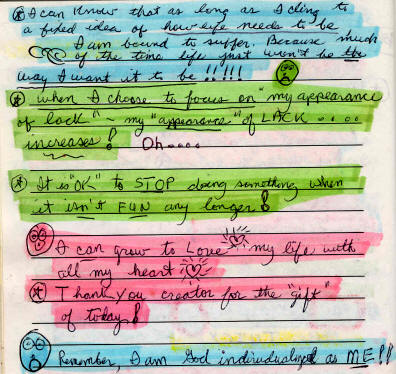 I can know that as long as I cling to
a fixed idea of how life needs to be
I am bound to suffer. Because much
of the time life just won't be the
way I want it to be !!!!!
When I choose to focus on "my appearance
of lack" ~ my "appearance" of LACK ....
increases! Oh....
It is "OK" to STOP doing something when
it isn't FUN any longer!
I can grow to Love my life with
all my heart
Thank you creator for the "gift"
of today!
Remember, I am God individualized as ME!!